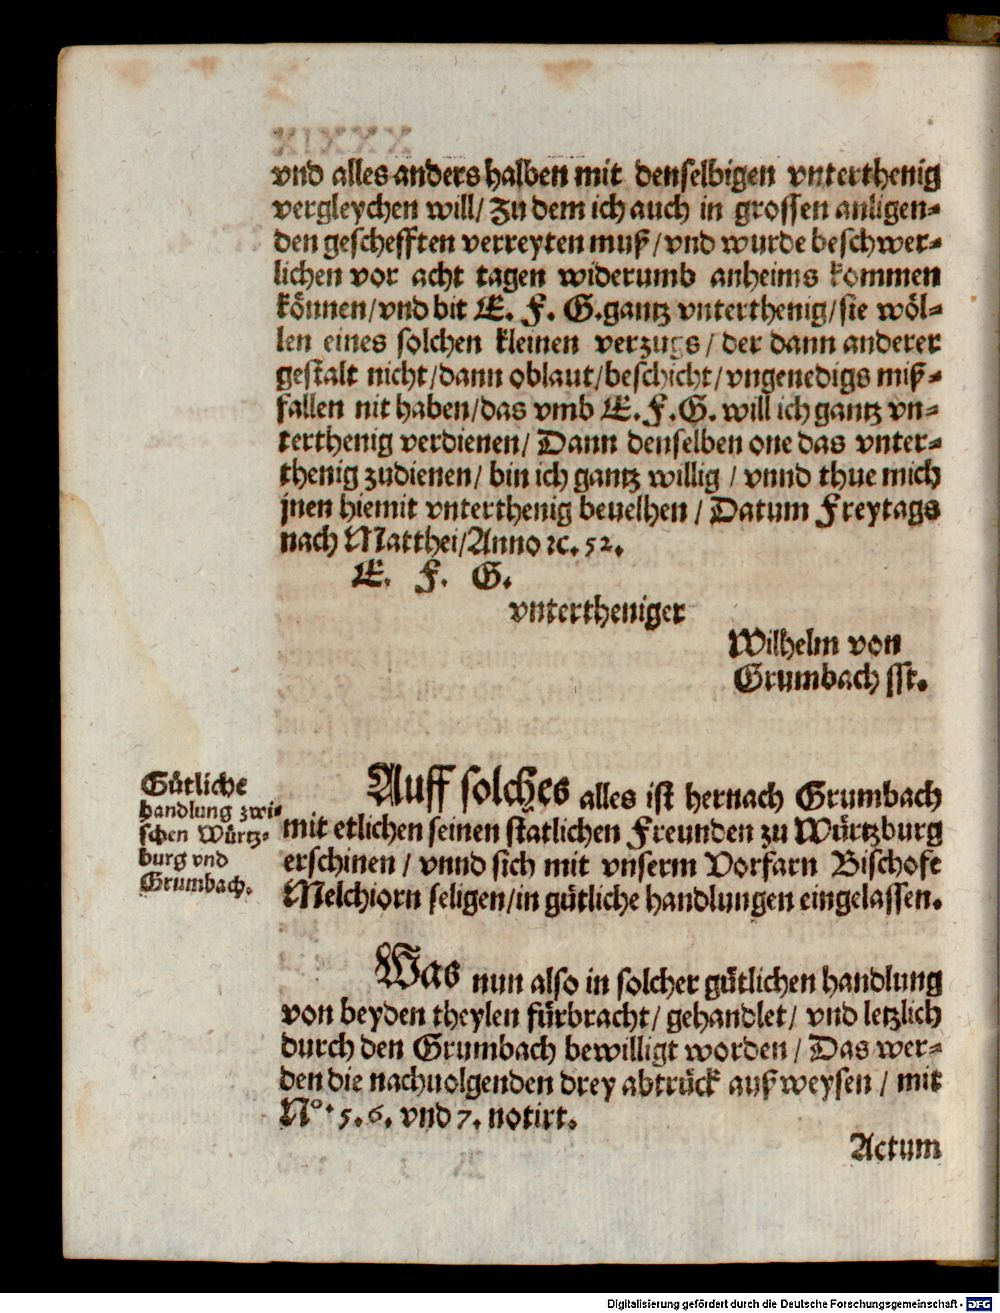 vnd alles anders halben mit denselbigen vnterthenig
vergleychen will/ Zu dem ich auch in grossen anligen⸗
den geschefften verreyten muß/ vnd wurde beschwer⸗
lichen vor acht tagen widerumb anheims kommen
können/vnd bit E. F. G. gantz vnterthenig/ sie wöl⸗
len eines solchen kleinen verzugs / der dann anderer
gestalt nicht/dann oblaut/beschicht/ vngenedigs miß⸗
fallen nit haben/das vmb E. F. G. will ich gantz vn⸗
terthenig verdienen/ Dann denselben one das vnter⸗
thenig zudienen/ bin ich gantz willig / vnnd thue mich
jnen hiemit vnterthenig beuelhen / Datum Freytags
nach Matthei/Anno ꝛc. 52.
E. F. G.
vntertheniger
Wilhelm von
Grumbach sst.
Gütliche
handlung zwi⸗
schen Würtz⸗
burg vnd
Grumbach.
Auff solches alles ist hernach Grumbach
mit etlichen seinen statlichen Freunden zu Würtzburg
erschinen / vnnd sich mit vnserm Vorfarn Bischofe
Melchiorn seligen/in gütliche handlungen eingelassen.
Was nun also in solcher gütlichen handlung
von beyden theylen fürbracht/ gehandlet/ vnd letzlich
durch den Grumbach bewilligt worden / Das wer⸗
den die nachuolgenden drey abtrück außweysen / mit
Nº. 5. 6. vnd 7. notirt.
Actum
Digitalisierung gefördert durch die Deutsche Forschungsgemeinschaft - DFG